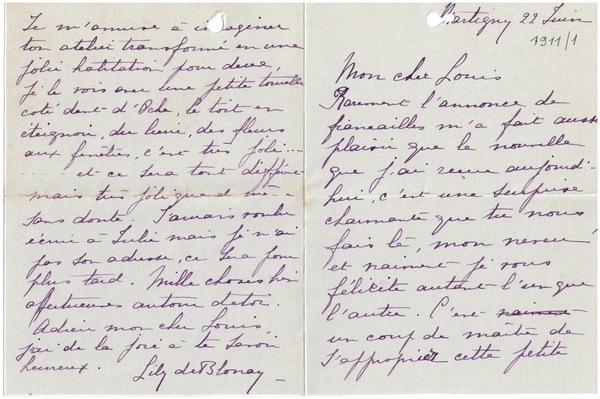 Martigny 22 Juin
1911/1
Mon cher Louis
Rarement l'annonce de
fiancailles m'a fait aussi
plaisir que la nouvelle
que j'ai reçue aujourd'-
hui, c'est une surprise
charmante que tu nous
fais là, mon neveu,
et vraiment je vous
félicite autant l'un que
l'autre. C'est vraiment
un coup de maître de
s'approprier cette petite
Je m'amuse à imaginer
ton atelier transformé en une
jolie habitation pour deux,
je le vois avec une petite tourelle
coté dent-d'Oche, le toit en
éteignoir, du lierre, des fleurs
aux fenêtres, c'est très joli....
.... et ce sera tout différent
mais très joli quand mê-
sans doute. J'aurais voulu
écrire à Julie mais je n'ai
pas son adresse, ce sera pour
plus tard. Mille choses bien
affectueuses autour de toi.
Adieu mon cher Louis,
j'ai de la joie à te savoir
heureux.
Lily de Blonay